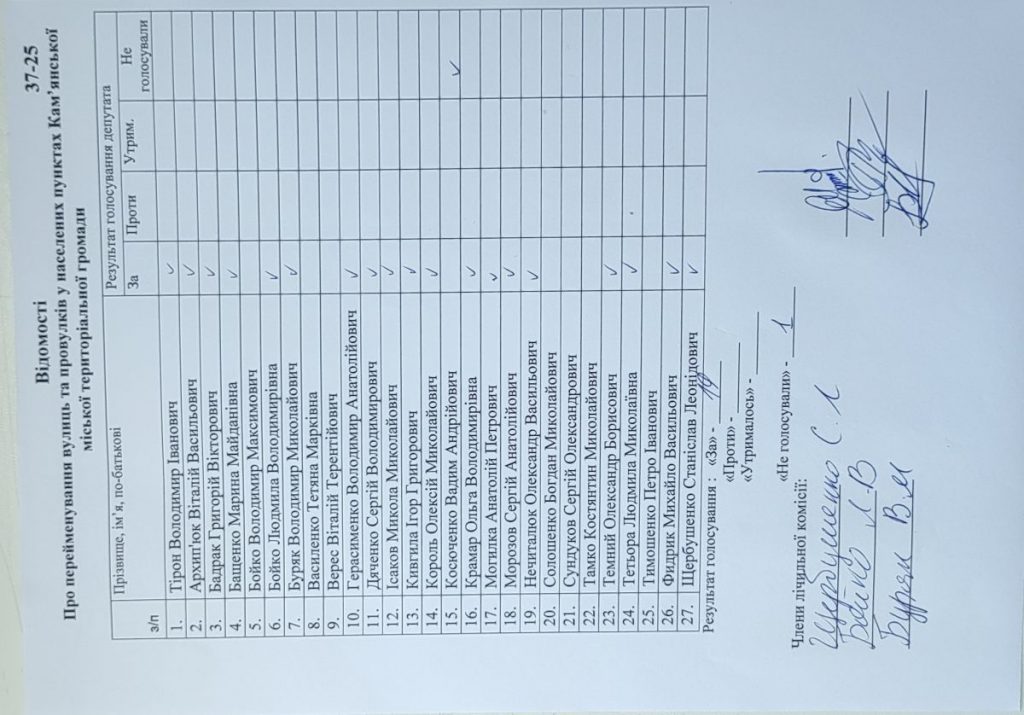 37-25
Відомості
Про перейменування вулиць та провулків у населених пунктах Кам’янської
міської територіальної громади
з/п Прізвище, ім’я, по-батькові Результат голосування депутата
За Проти Утрим. Не голосували
1. Тірон Володимир Іванович ✓
2. Архип'юк Віталій Васильович ✓
3. Бадрак Григорій Вікторович ✓
4. Бащенко Марина Майданівна ✓
5. Бойко Володимир Максимович
6. Бойко Людмила Володимирівна ✓
7. Буряк Володимир Миколайович ✓
8. Василенко Тетяна Марківна
9. Верес Віталій Терентійович
10. Герасименко Володимир Анатолійович ✓
11. Дяченко Сергій Володимирович ✓
12. Ісаков Микола Миколайович ✓
13. Кивгила Ігор Григорович ✓
14. Король Олексій Миколайович ✓
15. Косюченко Вадим Андрійович ✓
16. Крамар Ольга Володимирівна ✓
17. Могилка Анатолій Петрович ✓
18. Морозов Сергій Анатолійович ✓
19. Нечиталюк Олександр Васильович ✓
20. Солошенко Богдан Миколайович
21. Сундуков Сергій Олександрович
22. Тамко Костянтин Миколайович
23. Темний Олександр Борисович ✓
24. Тетьора Людмила Миколаївна ✓
25. Тимошенко Петро Іванович
26. Фидрик Михайло Васильович ✓
27. Щербушенко Станіслав Леонідович ✓
Результат голосування : «За» - 19
«Проти» -
«Утрималось» -
«Не голосували» - 1
Члени лічильної комісії:
Щербушенко С. Л
Бойко Л. В
Буряк В. М